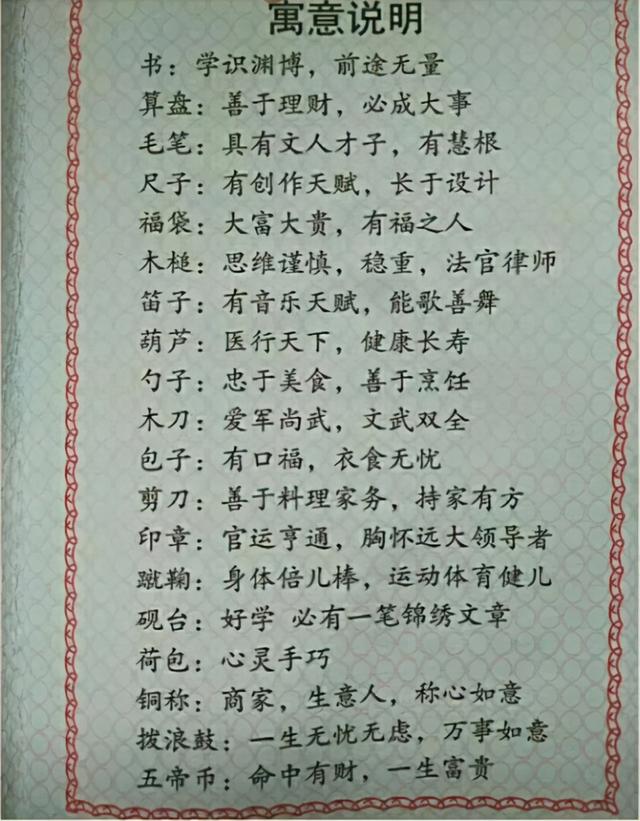 寓意说明
书：学识渊博，前途无量
算盘：善于理财，必成大事
毛笔：具有文人才子，有慧根
尺子：有创作天赋，长于设计
福袋：大富大贵，有福之人
木槌：思维谨慎，稳重，法官律师
笛子：有音乐天赋，能歌善舞
葫芦：医行天下，健康长寿
勺子：忠于美食，善于烹饪
木刀：爱军尚武，文武双全
包子：有口福，衣食无忧
剪刀：善于料理家务，持家有方
印章：官运亨通，胸怀远大领导者
蹴鞠：身体倍儿棒，运动体育健儿
砚台：好学 必有一笔锦绣文章
荷包：心灵手巧
铜称：商家，生意人，称心如意
拨浪鼓：一生无忧无虑，万事如意
五帝币：命中有财，一生富贵